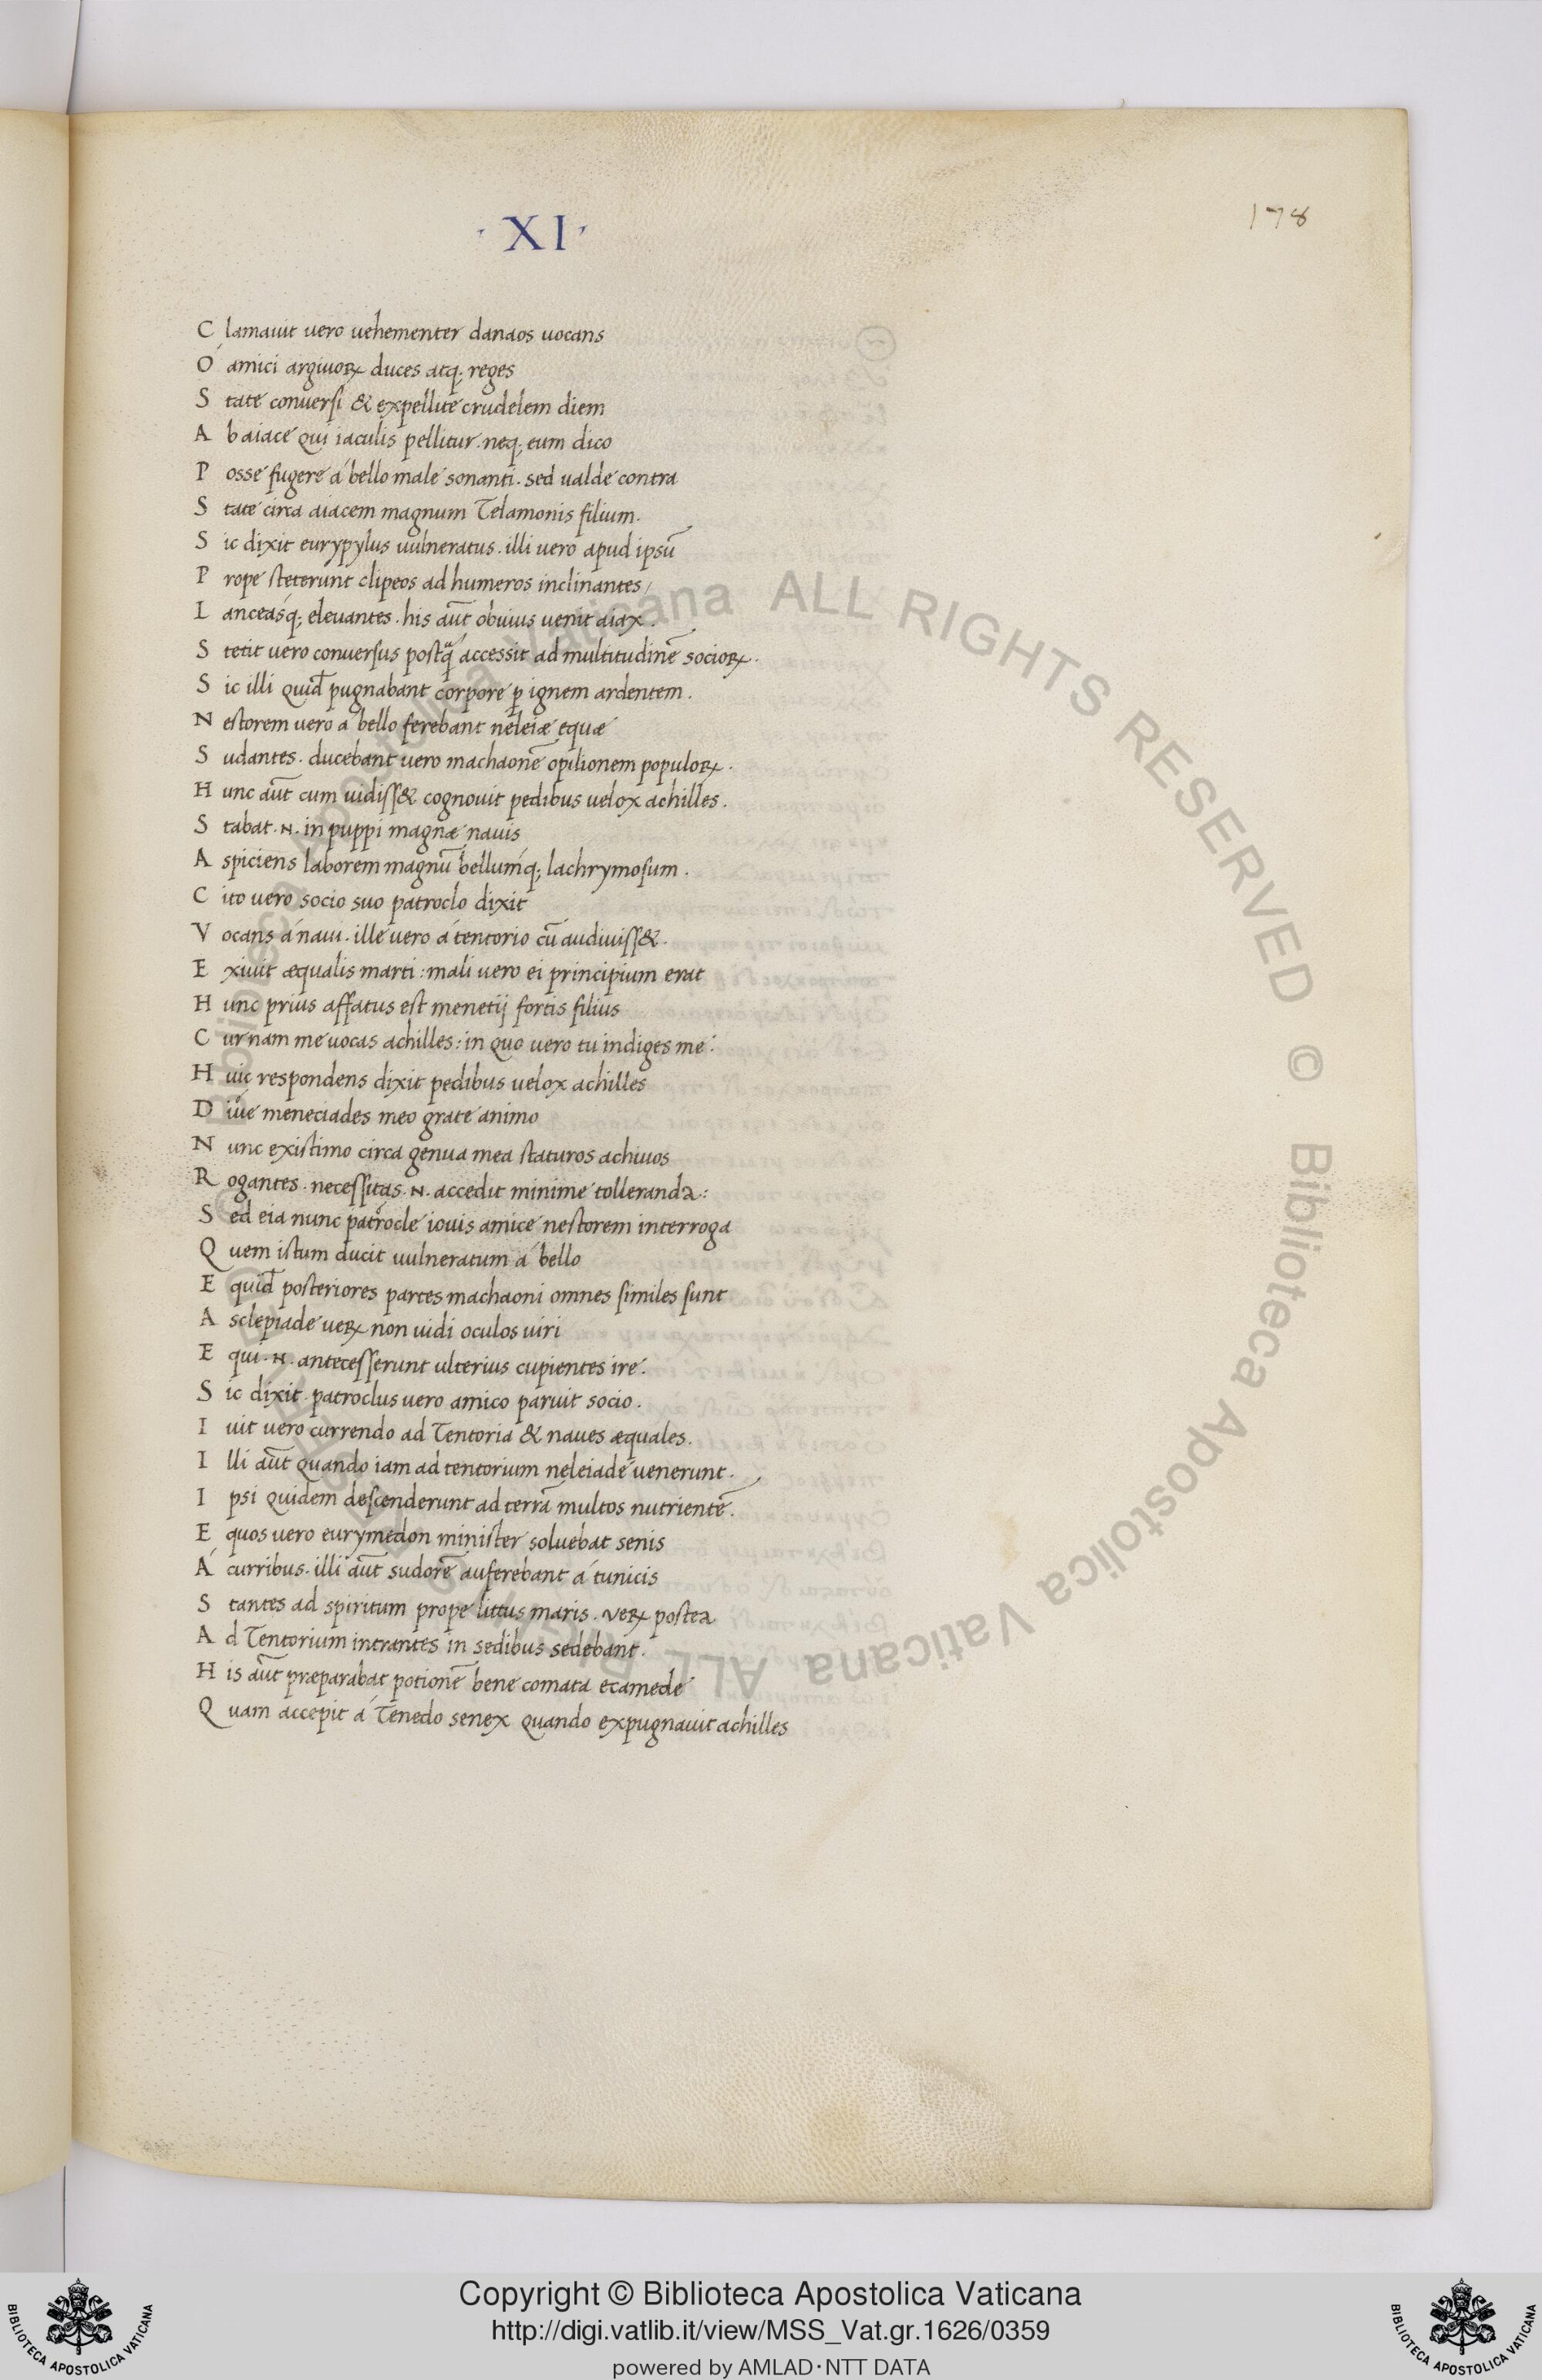 · XI ·
178
Clamauit uero uehementer danaos uocans
Ó amici argiuoꝝ duces atq; reges
State conuersi & expellite crudelem diem
Ab aiace qui iaculis pellitur. neq; eum dico
Posse fugere á bello male sonanti. sed ualde contra
State circa aiacem magnum Telamonis filium.
Sic dixit eurypylus uulneratus. illi uero apud ipsū
Prope steterunt clipeos ad humeros inclinantes/
Lanceasq; eleuantes. his aūt obuius uenit aiax.
Stetit uero conuersus postq̃ accessit ad multitudinē socioꝝ.
Sic illi quid pugnabant corpore ꝑ ignem ardentem.
Nestorem uero á bello ferebant neleiæ equæ
Sudantes. ducebant uero machaonē opilionem populoꝝ.
Hunc aūt cum uidiss& cognouit pedibus uelox achilles.
Stabat .N. in puppi magnæ nauis
Aspiciens laborem magnū bellumq; lachrymosum.
Cito uero socio suo patroclo dixit
Vocans á naui. ille uero á tentorio cū audiuiss&.
Exiuit æqualis marti: mali uero ei principium erat
Hunc prius affatus est menetij fortis filius
Cur nam me uocas achilles: in quo uero tu indiges me:
Huic respondens dixit pedibus uelox achilles
Diue meneciades meo grate animo
Nunc existimo circa genua mea staturos achiuos
Rogantes. necessitas .N. accedit minime tolleranda:
Sed eia nunc patrocle iouis amice nestorem interroga
Quem istum ducit uulneratum á bello
Equid posteriores partes machaoni omnes similes sunt
Asclepiade ueꝝ non uidi oculos uiri
Equi .N. antecesserunt ulterius cupientes ire.
Sic dixit. patroclus uero amico paruit socio.
Iuit uero currendo ad Tentoria & naues æquales.
Illi aūt quando iam ad tentorium neleiade uenerunt.
Ipsi quidem descenderunt ad terrā multos nutrientē.
Equos uero eurymedon minister soluebat senis
Á curribus. illi aūt sudorē auferebant á tunicis
Stantes ad spiritum prope littus maris. ueꝝ postea
Ad Tentorium intrantes in sedibus sedebant.
His aūt præparabat potionē bene comata ecamede
Quam accepit á Tenedo senex quando expugnauit achilles
Biblioteca Apostolica Vaticana ALL RIGHTS RESERVED © Biblioteca Apostolica Vaticana ALL RIGHTS RESERVED ©
Copyright © Biblioteca Apostolica Vaticana
http://digi.vatlib.it/view/MSS_Vat.gr.1626/0359
powered by AMLAD·NTT DATA
BIBLIOTECA APOSTOLICA VATICANA
BIBLIOTECA APOSTOLICA VATICANA